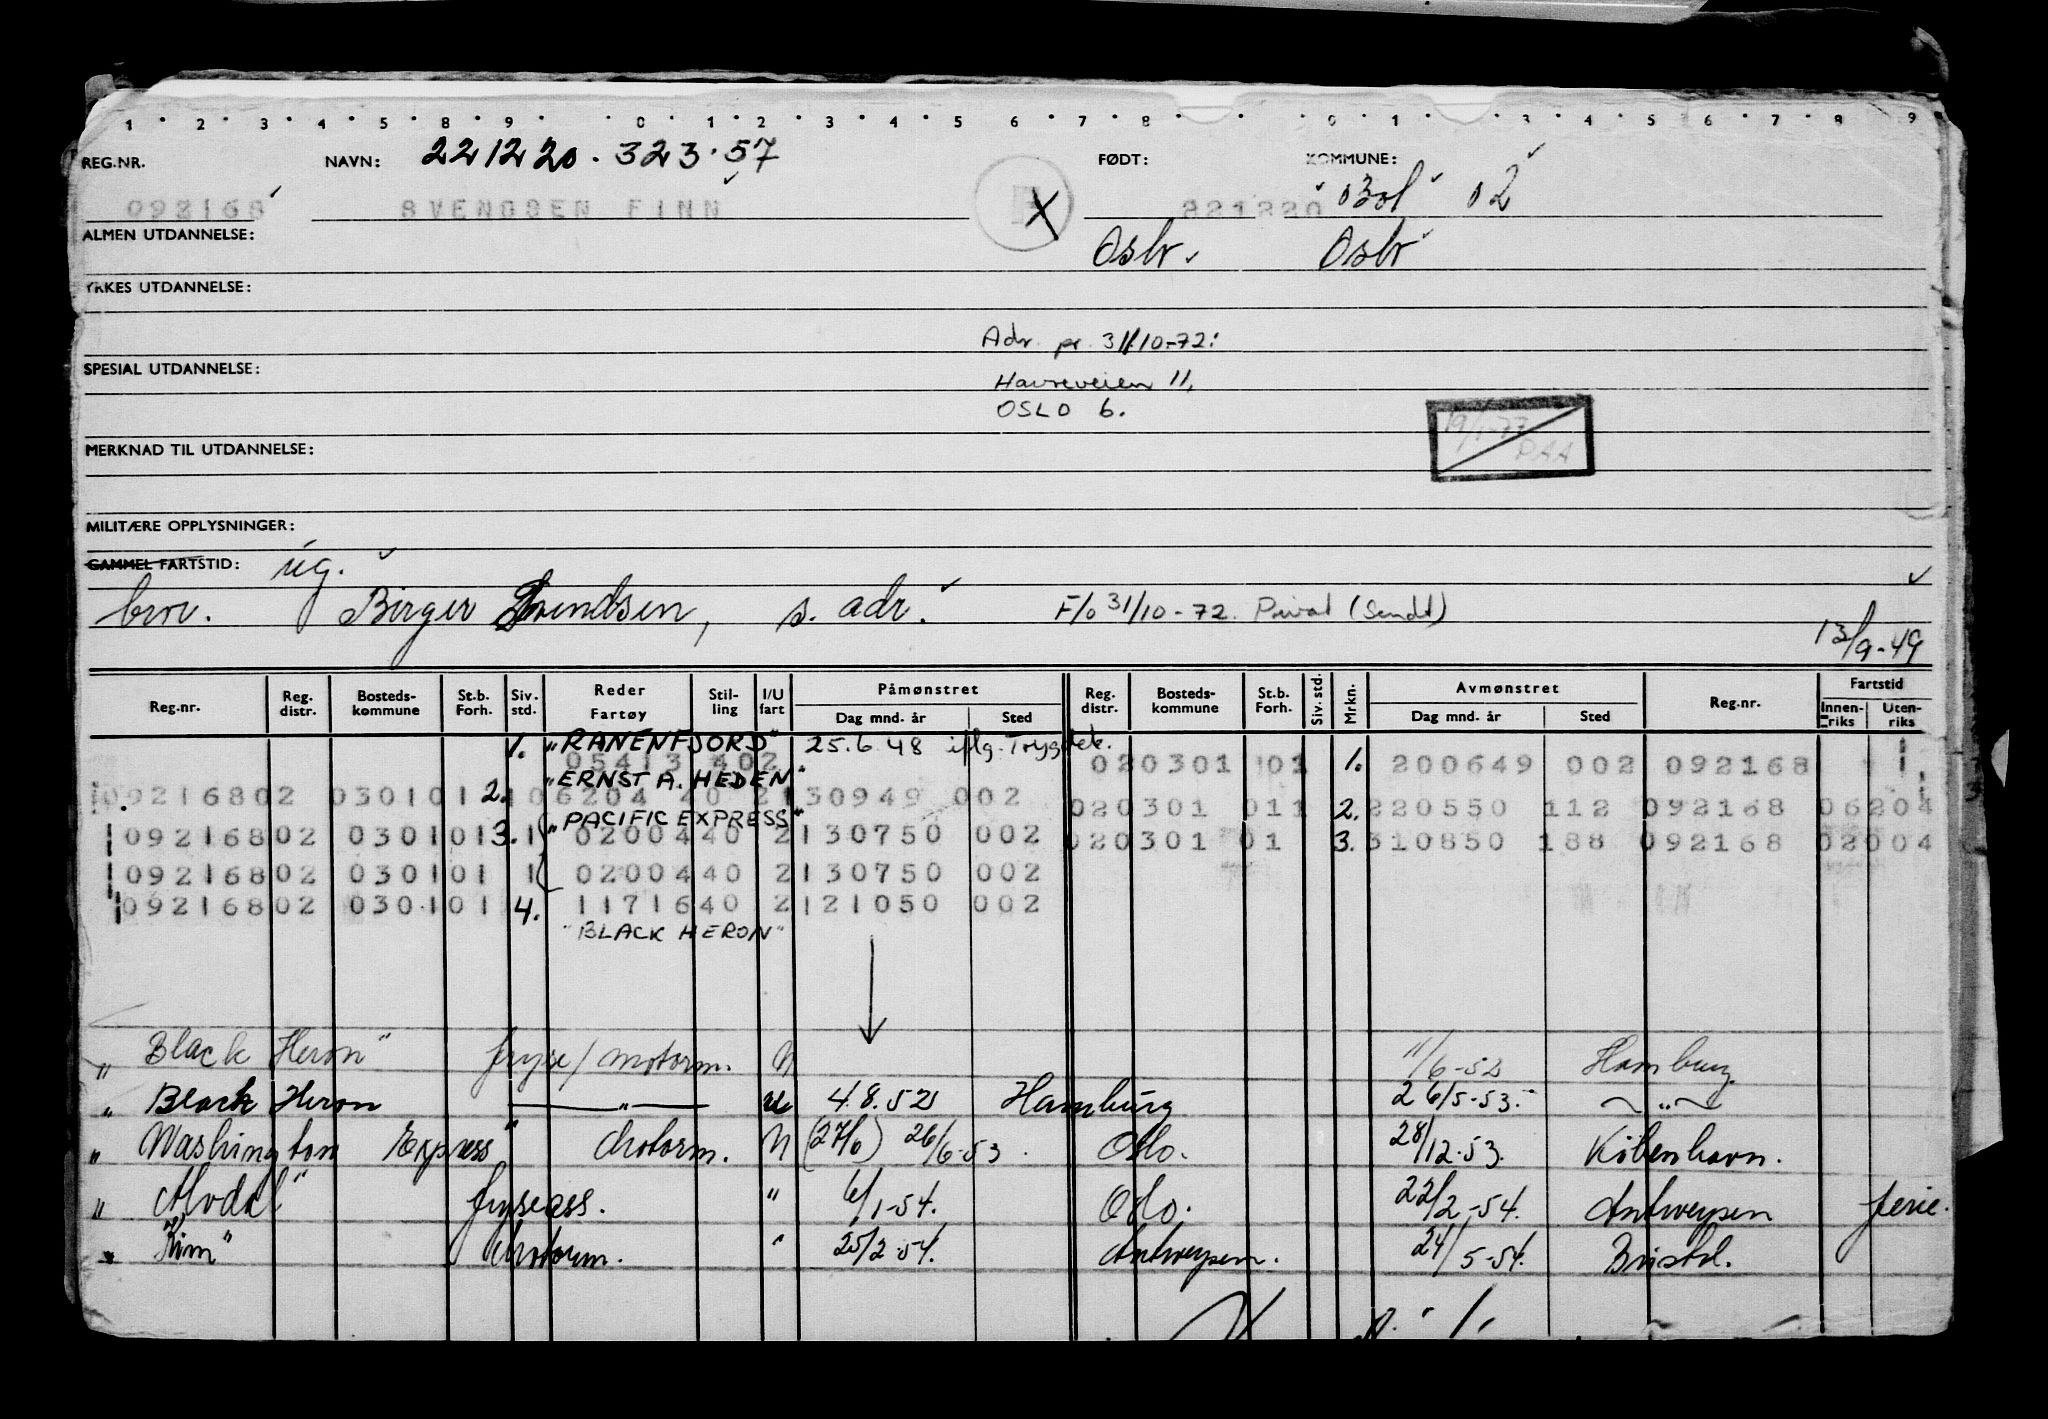 1 2 3 4 5 8 9 0 1 2 3 4 5 6 7 8 0 1 3 4 5 6 7 8 9
REG.NR. NAVN: 221220.323.57 FØDT: KOMMUNE:
092168 SVENDSEN FINN 221220 0301 02
ALMEN UTDANNELSE: Oslo. Oslo
YRKES UTDANNELSE:
Adr. pr. 31/10-72:
SPESIAL UTDANNELSE: Havreveien 11,
OSLO 6.
19/1-77
PAA
MERKNAD TIL UTDANNELSE:
MILITÆRE OPPLYSNINGER:
GAMMEL FARTSTID: ug.
bror. Birger Svendsen, s. adr. F/o 31/10-72. Privat (Sendt)
13/9-49
Reg.nr. Reg. distr. Bosteds-kommune St.b. Forh. Siv. std. Reder Fartøy Stil-ling I/U fart Påmønstret Dag mnd. år Sted Reg. distr. Bosteds-kommune St.b. Forh. Siv. std. Mrkn. Avmønstret Dag mnd. år Sted Reg.nr. Fartstid Innen-riks Uten-riks
1. "RANENFJORD" 25.6.48 iflg. Trygdek.
05413 402 020301 01 1. 200649 002 092168
"ERNST A. HEDEN"
09216802 030101 2. 106204 40 2130949 002 020301 011 2. 220550 112 092168 06204
"PACIFIC EXPRESS"
09216802 030101 3. 1 0200440 2130750 002 020301 01 3. 310850 188 092168 02004
09216802 030101 1 0200440 2130750 002
09216802 030101 4. 1171640 2121050 002
"BLACK HERON"
" Black Heron" fryse/motorm. U 11/6-52 Hamburg.
" Black Heron — " — u 4.8.52 Hamburg 26/5-53. — " —
" Washington Express" Motorm. U (27/6) 26/6-53. Oslo. 28/12-53. København.
" Alvdal" fryseass. " 6/1-54. Oslo. 22/2-54. Antwerpen ferie.
" Kim" Motorm. " 25/2-54. Antwerpen. 24/5-54. Bristol.